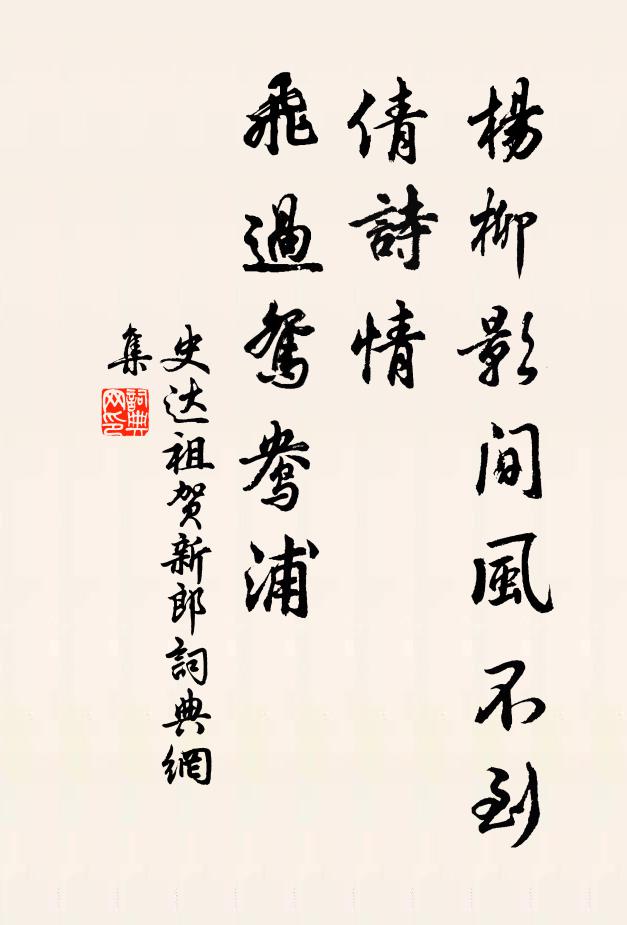 楊柳影間風不到
倩詩情
飛過鴛鴦浦
史达祖贺新郎詞典網
集
詞典
网印